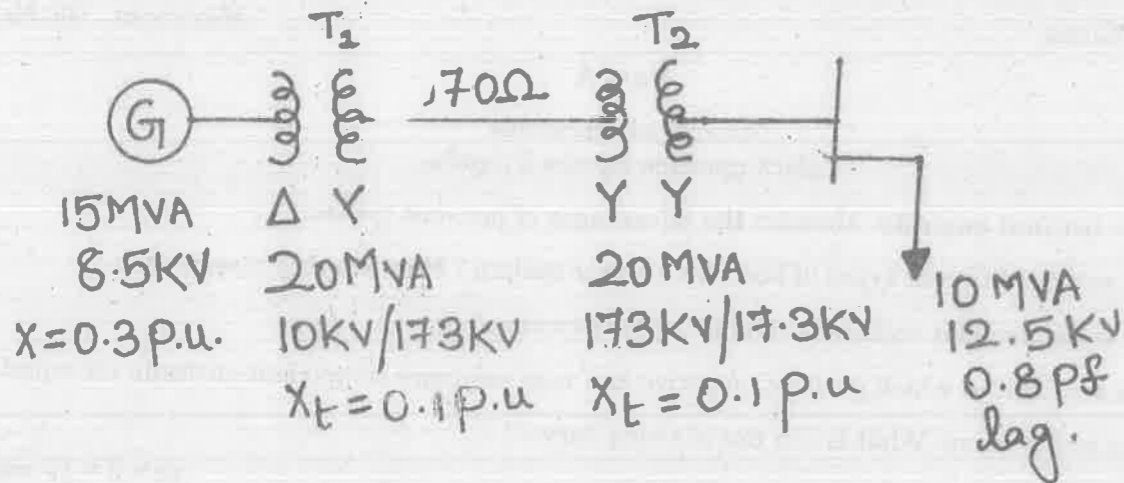 T1 T2
,70Ω
G
15MVA
8.5KV
X=0.3p.u.
Δ Y
20MVA
10KV/173KV
Xt=0.1p.u
Y Y
20MVA
173KV/17.3KV
Xt=0.1p.u
10MVA
12.5KV
0.8pf
lag.